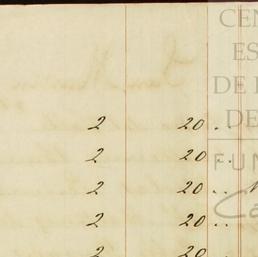 CEN
ES
DE
DE
FUN
Ca
2 20 . .
2 20 . .
2 20 . .
2 20 . .
2 20 . .